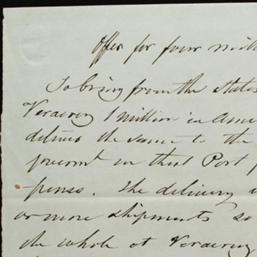 Offer for four mill
To bring from the States
Veracruz 1 million in Ame
deliver the same to the
in that Port
pense. The delivery
or more shipments so
the whole at Veracruz